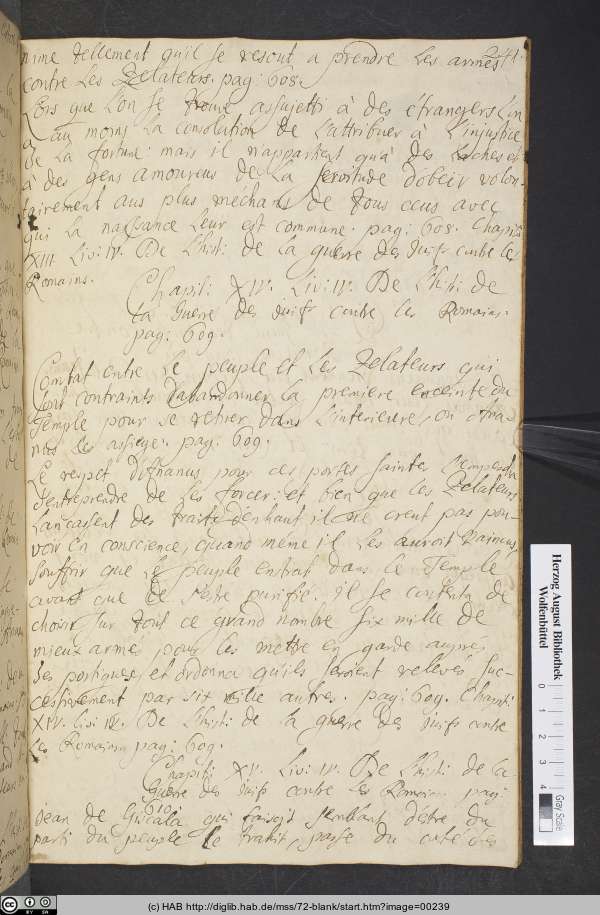 nime tellement qu'il se resout a prendre les armes 241.
contre les Zelateurs. pag: 608.
Lors que l'on se trouve assujetti à des étrangers l'on
a au moins la consolation de l'attribuer à l'injustice
de la fortune: mais il n'appartient qu'à des laches et
à des gens amoureus de la servitude d'obeir volon-
tairement aus plus méchans de tous ceus avec
qui la naissance leur est commune. pag: 608. Chapit:
XIII. Liv: IV. De l'hist: de la guerre des Juifs contre les
Romains.
Chapit: XIV. Liv: IV. De l'hist: de
la Guerre des Juifs contre les Romains.
pag: 609.
Combat entre le peuple et les Zelateurs qui
sont contraints d'abandonner la premiere enceinte du
Temple pour se retirer dans l'interieure, où Ana-
nus les assiege. pag: 609.
Le respet d'Ananus pour ces portes saintes l'empescha
d'entreprendre de les forcer: et bien que les Zelateurs
lançassent des traits d'enhaut il ne creut pas pou-
voir en conscience, quand même il les auroit vaincus,
souffrir que le peuple entrat dans le Temple
avant que de s'estre purifié. il se contenta de
choisir sur tout ce grand nombre six mille de
mieux armé pour les mettre en garde auprés
des portiques, et ordonna qu'ils seroient relevés suc-
cessivement par six mille autres. pag: 609. Chapit:
XIV. Liv: IV. De l'hist: de la guerre des Juifs contre
les Romains pag: 609.
Chapit: XV. Liv: IV. De l'hist: de la
guerre des Juifs contre les Romains. pag:
610.
Jean de Giscala qui faisoit semblant d'être du
parti du peuple le trahit, passe du coté des
Herzog August Bibliothek
Wolfenbüttel
0 1 2 3 4
Gray Scale
(c) HAB http://diglib.hab.de/mss/72-blank/start.htm?image=00239